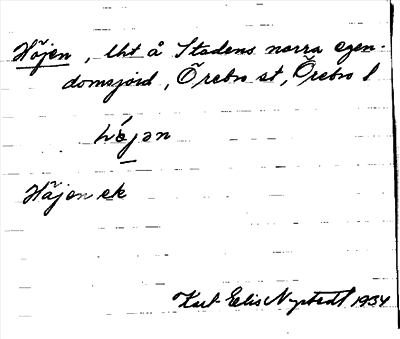 Höjen, lht å Stadens norra egen-
domsjord, Örebro st, Örebro l
höjən
Höjen ek
Karl-Elis Nystedt 1934